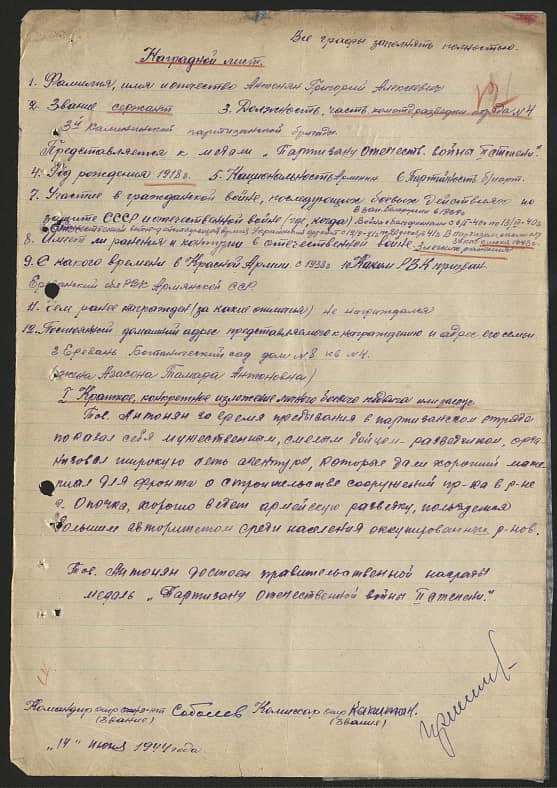 Все графы заполнять полностью.
Наградной лист.
1. Фамилия, имя и отчество Антонян Григорий Алексеевич
2. Звание сержант 3. Должность, часть отряда №4
3й Калининской партизанской бригады.
Представляется к медали „Партизану Отечеств. войны II степени."
4. Год рождения 1918г. 5. Национальность армянин 6. Партийность б/парт.
7. Участие в гражданской войне, последующих боевых действиях по
защите СССР и отечественной войне (где, когда)
8. Имеет ли ранения и контузии в отечественной войне
9. С какого времени в Красной Армии. с 1938г. 10. Каким РВК призван.
Ереванский РВК Армянской ССР
11. Чем ранее награжден (за какие отличия) не награждался
12. Постоянный домашний адрес представляемого к награждению и адрес его семьи
г. Еревань Ботанический сад дом №8 кв №4.
(жена Тамара Антоновна)
I Краткое, конкретное изложение личного боевого подвига или заслуг
Тов. Антонян за время пребывания в партизанском отряде
показал себя мужественным, смелым бойцом-разведчиком, орга-
низовал широкую сеть агентуры, которая дали хороший мате-
риал для фронта о строительстве сооружений пр-ка в р-не
г. Опочка, хорошо ведет армейскую разведку, пользуется
большим авторитетом среди населения оккупированных р-нов.
Тов. Антонян достоен правительственной награды
медаль „Партизану Отечественной войны II степени."
Командир Соболев Комиссар
(звание) (звание)
„14" июня 1944 года